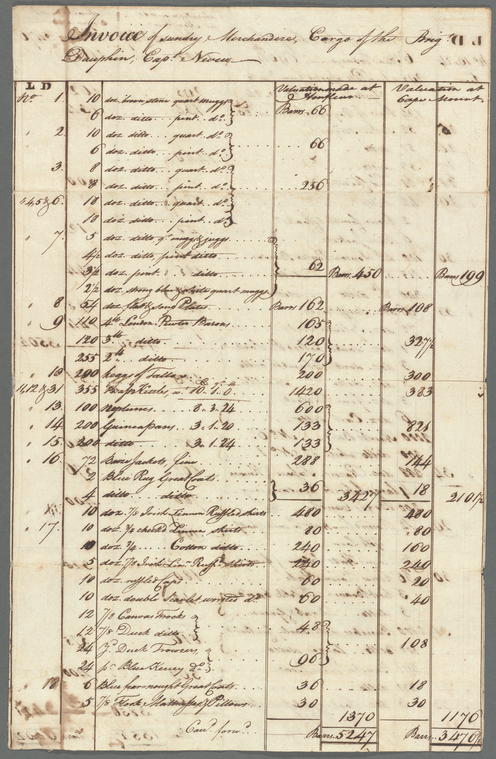 Invoice of sundry Merchandize, Cargo of the Brig
Dauphin, Capt.
Valuation made at
Valuation at
Cape Mount
L D
No 1 10 doz. brown stone quart muggs
6 doz. ditto pint do. Barrs 66
2 10 doz. ditto quart do.
6 doz. ditto pint do. 66
3 8 doz. ditto quart do.
doz. ditto pint do. 256
3,4,5 & 6 18 doz. ditto quart do.
10 doz. ditto pint do.
7 5 doz. ditto qt. muggs & juggs
4½ doz. ditto pint ditto
3½ doz. pint ditto 62 Barrs 450 Barrs 199
2½ doz. strong blue & white quart muggs
8 54 doz. Plates Barrs 162 Barrs 108
9 110 4 lb London Pewter Basons 165
120 3 lb ditto 120 327½
255 2 lb ditto 170
10 200 Keggs of Tallow 200 300
11, 12 & 31 355 Kettles, 1420 383
13 100 Neptunes 8.3.24 600
14 200 Guinea pans 3.1.20 133 828
15 200 ditto 3.1.24 133
16 72 Jackets fine 288 144
2 Blue Rug Great Coats
4 ditto ditto 36 3427 18 2101½
10 doz. 7/8 Irish Linnen Ruffled shirts 480 400
17 10 doz. ¾ check'd Linnen shirts 80 80
10 doz. ¾ Cotton ditto 240 100
5 doz. 7/8 Irish Lin. Ruff. Shirts 240 240
10 doz. Caps 60 20
10 doz. double Scarlet worsted do. 60 40
12 7/8 Canvas Frocks
12 7/8 Duck ditto 48
24 pr. Duck Trowsers 108
24 pr. Blue Kersey do. 96
18 6 Blue fearnought Great Coats 36 18
5 7/8 Mattrasses & Pillows 30 30
1370 1176
Card. forwd. Barrs 5247 Barrs 3476½